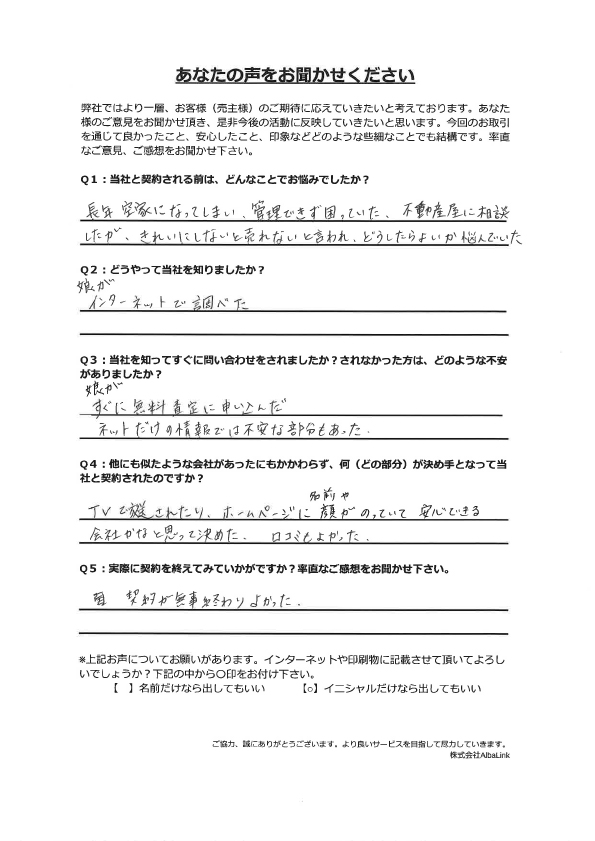 あなたの声をお聞かせください
弊社ではより一層、お客様（売主様）のご期待に応えていきたいと考えております。あなた
様のご意見をお聞かせ頂き、是非今後の活動に反映していきたいと思います。今回のお取引
を通じて良かったこと、安心したこと、印象などどのような些細なことでも結構です。率直
なご意見、ご感想をお聞かせ下さい。
Q1：当社と契約される前は、どんなことでお悩みでしたか？
長年空家になってしまい、管理できず困っていた、不動産屋に相談
したが、きれいにしないと売れないと言われ、どうしたらよいか悩んでいた
Q2：どうやって当社を知りましたか？
娘が
インターネットで調べた
Q3：当社を知ってすぐに問い合わせをされましたか？されなかった方は、どのような不安
がありましたか？
娘が
すぐに無料査定に申し込んだ
ネットだけの情報では不安な部分もあった.
Q4：他にも似たような会社があったにもかかわらず、何（どの部分）が決め手となって当
社と契約されたのですか？
名前や
TVで放送されたり、ホームページに顔がのっていて安心できる
会社かなと思って決めた. 口コミもよかった.
Q5：実際に契約を終えてみていかがですか？率直なご感想をお聞かせ下さい。
契約が無事終わりよかった.
※上記お声についてお願いがあります。インターネットや印刷物に記載させて頂いてよろし
いでしょうか？下記の中から〇印をお付け下さい。
【 】名前だけなら出してもいい 【○】イニシャルだけなら出してもいい
ご協力、誠にありがとうございます。より良いサービスを目指して尽力していきます。
株式会社AlbaLink